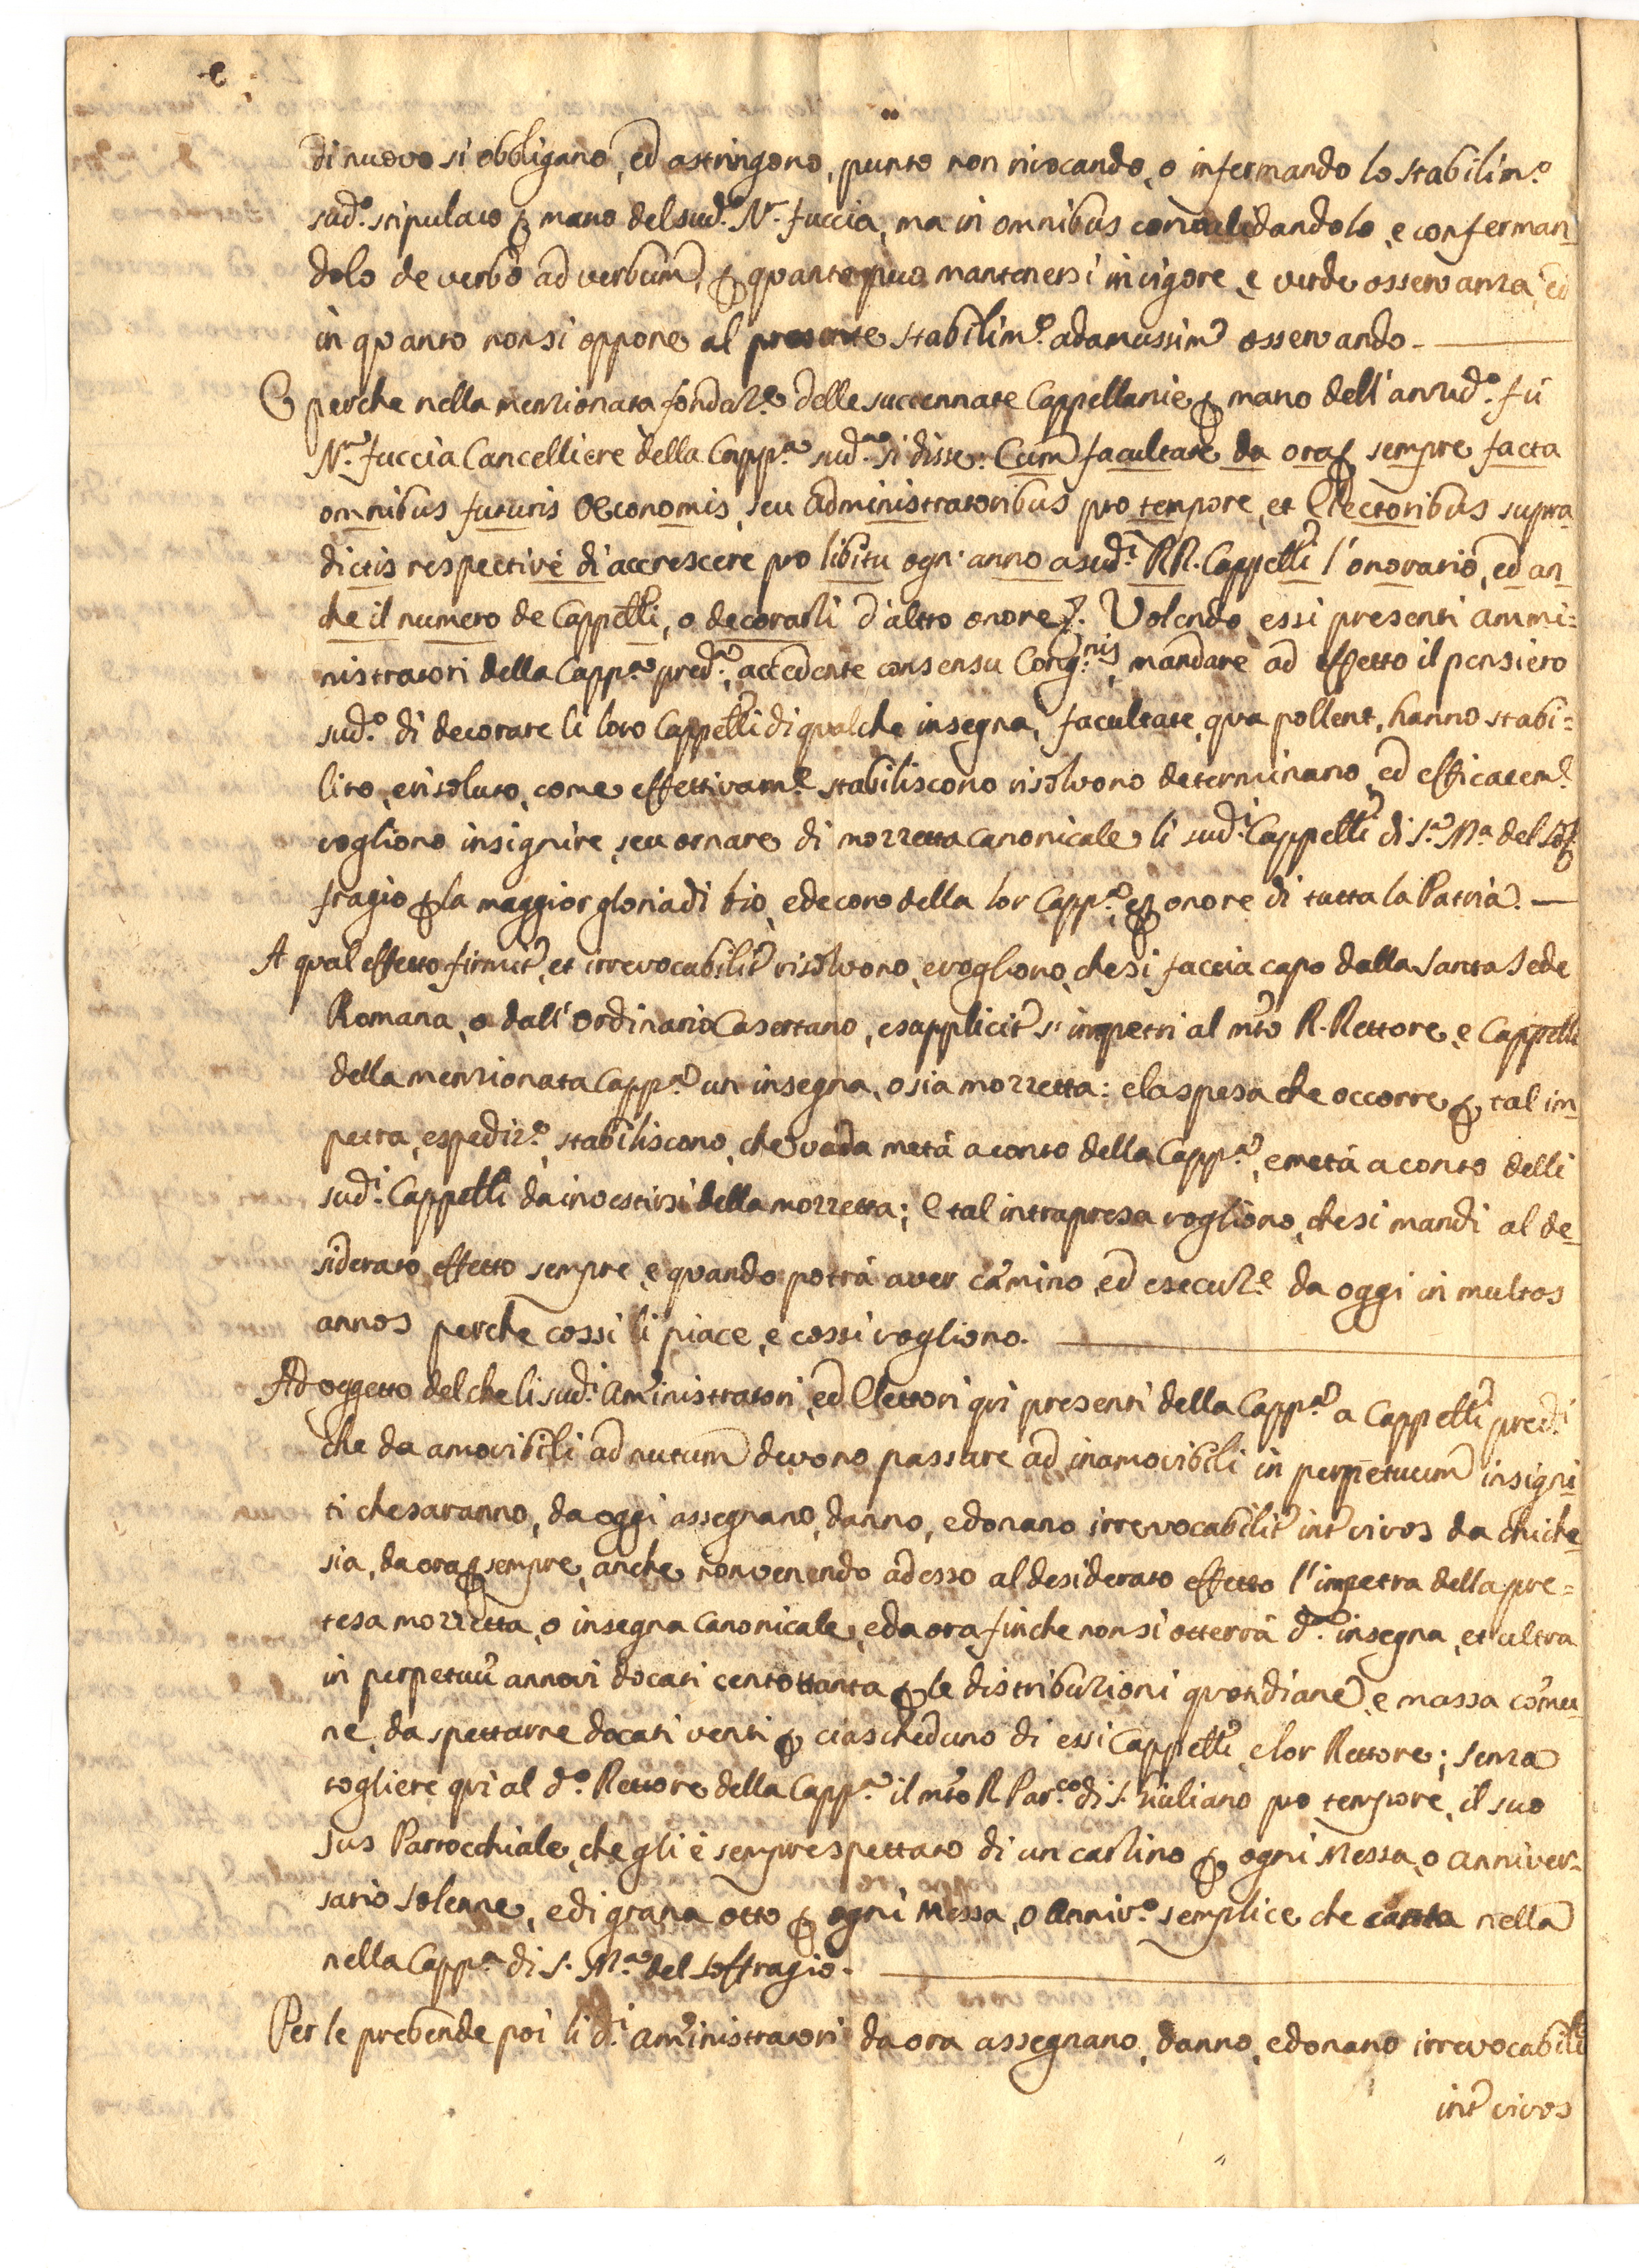 di nuovo si obbligano, ed astringono, punto non rivocando, o infermando lo stabilim.o
sud.o stipulato p mano del sud.o N.r Fuccia, ma in omnibus convalidandolo, e conferman_
dolo de verbo ad verbum, p quanto può mantenersi in vigore, e verde osservanza, ed
in quanto non si oppone al presente stabilim.o adamussim osservando.
E perche nella menzionata fondaz.e delle succennate Cappellanie p mano dell'anzid.o fù
N.r Fuccia Cancelliere della Capp.a sud.a si disse: Cum facultate da ora p sempre facta
omnibus futuris Oeconomis, seu Administratoribus pro tempore, et Electoribus supra_
dictis respectivè di accrescere pro libitu ogn'anno a sud.i RR. Cappelli l'onorario, ed an_
che il numero de Cappelli, o decorarli d'altro onore. Volendo essi presenti Ammi=
nistratori della Capp.a pred.a, accedente consensu Cong.nis, mandare ad effetto il pensiero
sud.o di decorare li loro Cappelli di qualche insegna, facultate, qua pollent, hanno stabi=
lito, e risoluto, come effettivam.e stabiliscono risolvono determinano, ed efficacem.e
vogliono insignire, seu ornare di mozzetta canonicale li sud.i Cappelli di S.a M.a del Suf_
fragio p la maggior gloria di Dio, e decoro della lor Capp.a, e p onore di tutta la Patria.
A qual effetto firmit, et irrevocabilit risolvono, e vogliono, che si faccia capo dalla Santa Sede
Romana, o dall'Ordinario Casertano, e s'impetri al m.to R. Rettore, e Cappelli
della menzionata Capp.a un insegna, o sia mozzetta: e la spesa che occorre p tal im_
petra, e spediz.e, stabiliscono, che vada metà a conto della Capp.a, e metà a conto delli
sud.i Cappelli da investirsi della mozzetta; E tal intrapresa vogliono, che si mandi al de_
siderato effetto sempre, e quando potrà aver camino, ed esecuz.e da oggi in multos
annos perche cossi li piace, e cossi vogliono.
Ad oggetto del che li sud.i Aministratori, ed Elettori qui presenti della Capp.a a Cappelli pred.i
che da amovibili ad nutum devono passare ad inamovibili in perpetuum insigni_
ti che saranno, da oggi assegnano, danno, e donano irrevocabilit int vivos da chiche_
sia, da ora p sempre, anche non venendo adesso al desiderato effetto l'impetra della pre=
tesa mozzetta, o insegna canonicale, e da ora finche non si otterrà d.a insegna, et ultra
in perpetuu annui docati centottanta p le distribuzioni quotidiane, e massa comu_
ne, da spettarne docati venti p ciascheduno di essi Cappelli, e lor Rettore; senza
togliere quì al d.o Rettore della Capp.a il m.to R. Par.co di S. Giuliano pro tempore, il suo
Jus Parrocchiale, che gli è sempre spettato di un carlino p ogni Messa, o anniver_
sario solenne, e di grana otto p ogni Messa, o Anniv.o semplice che canta nella
nella Capp.a di S. M.a del Soffragio.
Per le prebende poi li d.i Aministratori da ora assegnano, danno, e donano irrevocabilt
int vivos